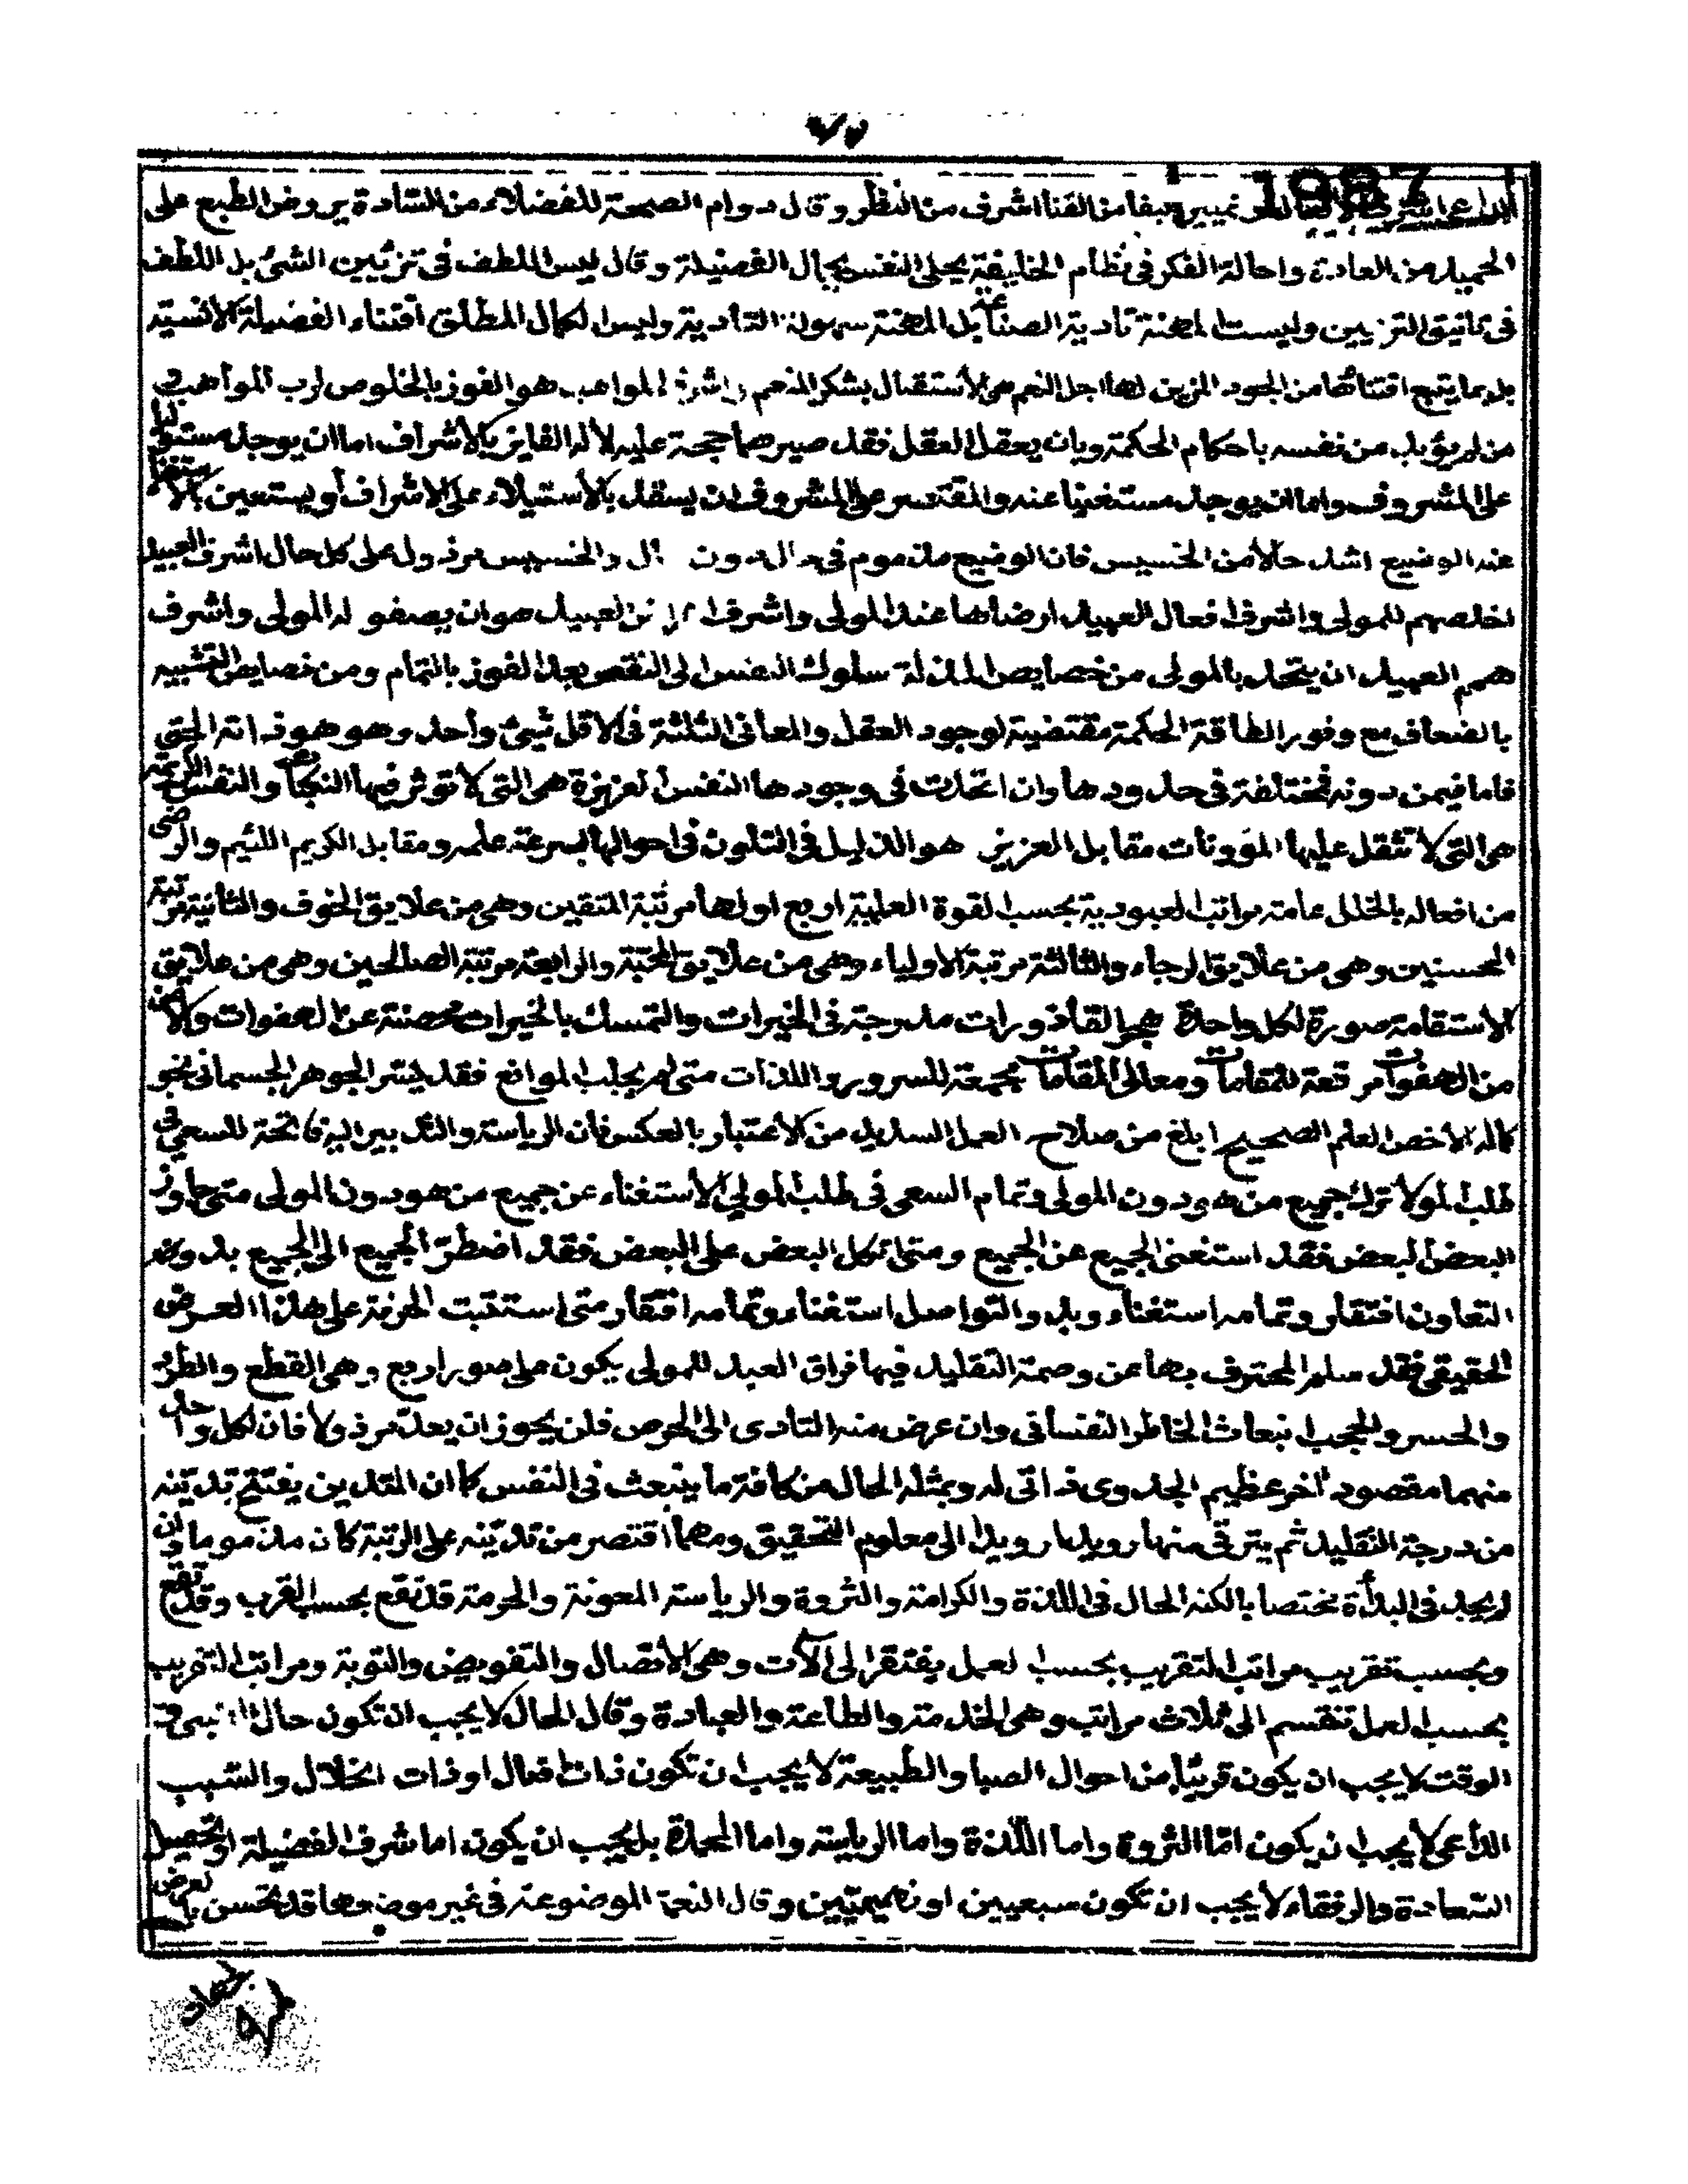 ٧٧
1987
من النظر وقال دوام الصحبة للفضلاء من السّادة يروض الطبع على
الجميل من العادة واحالة الفكر فى نظام الخليقة يحلى النفس بجمال الفضيلة وقال ليس اللطف فى تزئيين الشئ بل اللطف
فى تانيق التزيين وليست المهنة تادية الصناعة بل المهنة سهولة التأدية وليس الكمال المطلق اقتناء الفضيلة الانسيّة
بل بما يتبع اقتنائها من الجود المزين لها اجل النعم هى الأستقبال بشكر المنعم واشرف المواهب هو الفوز بالخلوص لرب المواهب
من لم يؤيد من نفسه باحكام الحكمة وبان يعقل العقل فقد صيرهما حجة عليه لا له الفايز بالأشراف اما ان يوجد مستوليا
على المشروف واما ان يوجد مستغنيا عنه والمقتسر على المشروف ان يسقل بالأستيلاء على الاشراف أو يستعين
عند الوضيع اشد حالا من الخسيس فان الوضيع مذموم فى حال دون حال والخسيس مرذول على كل حال اشرف العبيد
اخلصهم للمولى واشرف افعال العبيد ارضاها عند المولى واشرف العبيد هو ان يصفو له المولى واشرف
همم العبيد ان يتحد بالمولى من خصايص المذلة سلوك النفس الى النقص بعد الفوز بالتمام ومن خصايص التشبيه
بالضعاف مع وفور الطاقة الحكمة مقتضية لوجود العقل والمعانى الثلثة فى الاقل شئ وأحد وهو هو
فاما فيمن دونه فمختلفة فى حدودها وان اتحدت فى وجودها النفس العزيزة هى التى لا تؤثر فيها والنفس الكريمة
هى التى لا تثقل عليها المؤونات مقابل العزيز هو الذليل فى التلون فى احوالها بسرعة علمه ومقابل الكريم اللئيم والرضى
من افعاله بالخلل عامته مراتب العبودية بحسب القوة العلمية اربع اولها مرتبة المتقين وهى من علايق الخوف والثانية مرتبة
المحسنين وهى من علايق الرجاء والثالثة مرتبة الاولياء وهى من علايق المحبّة والرابعة مرتبة الصالحين وهى من علايق
الأستقامة صورة لكل واحدة هجر القاذورات مدرجة فى الخيرات والتمسك بالخيرات محصنة عن الهفوات والأمن
من الهفوات مرقعة للمقامات ومعالى المقامات مجمعة للسرور واللذات متى لم يجلب الموانع فقد يسّر الجوهر الجسمانى نحو
كماله الأخص العلم الصحيح ابلغ من صلاح العمل السديد من الأعتبار بالعكس فأن الرياسة والتدبير اليه فاتحة للسعى فى
طلب المولا ترك جميع من هو دون المولى وتمام السعى فى طلب المولى الأستغناء عن جميع من هو دون المولى متى جاوز
البعض البعض فقد استغنى الجميع عن الجميع ومتى اتكل البعض على البعض فقد اضطرّ الجميع الى الجميع بدو
التعاون افتقار وتمامه استغناء وبدو التواصل استغناء وتمامه افتقار متى استتبت الحرفة على هذا العرض
الحقيقى فقد سلم المحترف بها عن وصمة التقليد فيها فراق العبد للمولى يكون على صور اربع وهى القطع والطرد
والحسر والحجب انبعاث الخاطر النفسانى وان عرض منه التادى الى الحرص فلن يجوز ان يعدّ مرذولا فان لكل واحد
منهما مقصود اخر عظيم الجدوى ذاتى له وبمثله الحال من كافة ما ينبعث فى النفس كما ان المتدين يفتتح تديّنه
من درجة التقليد ثم يترقى منها رويدا رويدا الى معلوم التحقيق ومهما اقتصر من تديّنه على الرتبة كان مذموما وان
لم يجد فى البدأة مختصا بالكنه الحال فى اللذة والكرامة والثروة والرياسة المعونة والحرمة قد تقع بحسب القرب وقد تقع
وبحسب تقريب مراتب التقريب بحسب العمل يفتقر الى الآت وهى الأتصال والتفويض والتوبة ومراتب التقريب
بحسب العمل تنقسم الى ثلاث مراتب وهى الخدمة والطاعة والعبادة وقال الحال لا يجب ان تكون حال
الوقت لا يجب ان يكون قريبا من احوال الصبا والطبيعة لا يجب ان تكون ذات افعال او ذات اخلال والسبب
الداعى لا يجب ان يكون امّا الثروة واما اللّذة واما الرياسة واما المحمدة بل يجب ان يكون اما شرف الفضيلة او تحصيل
السّعادة والرفقاء لا يجب ان تكون سبعيين او بهيميّين وقال النعمة الموضوعة فى غير موضعها قد تحسن